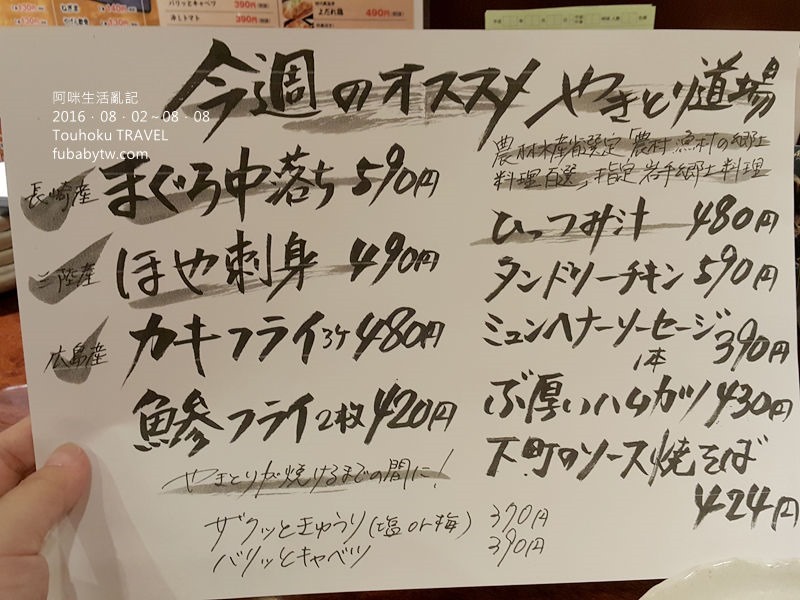 阿咪生活亂記
2016・08・02~08・08
Touhoku TRAVEL
fubabytw.com
バリッとキャベツ 390円
冷しトマト 390円
490円
今週のオススメ やきとり道場
長崎産 まぐろ中落ち 590円
三陸産 ほや刺身 490円
広島産 カキフライ3ケ 480円
鯵フライ2枚 420円
やきとりが焼けるまでの間に!
ザクッときゅうり(塩or梅) 370円
バリッとキャベツ 390円
農林水産省選定「農村漁村の郷土
料理百選」指定岩手郷土料理
ひっつみ汁 480円
タンドリーチキン 590円
ミュンヘナーソーセージ
1本 390円
ぶ厚いハムカツ 430円
下町のソース焼そば
424円